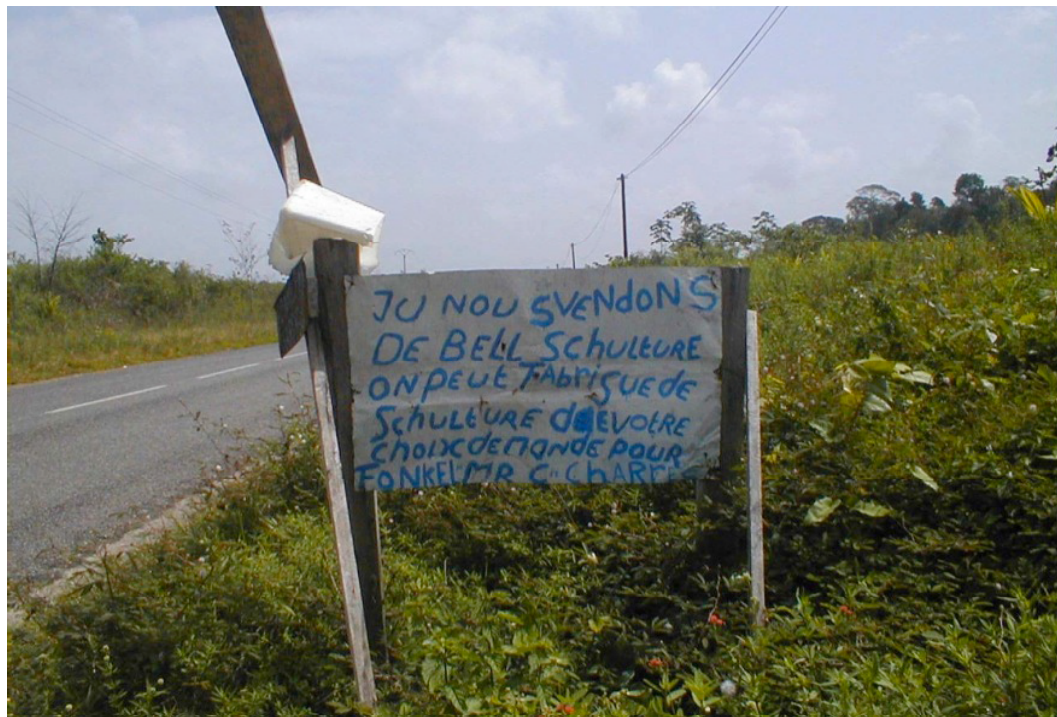 JU NOU SVENdONS
DE BELL SChULTURE
ONPEUT FAbRIQUE DE
SChULTURE DE VOTRE
ChOIX DEMANDE POUR
FONKEL MR C CHARLES